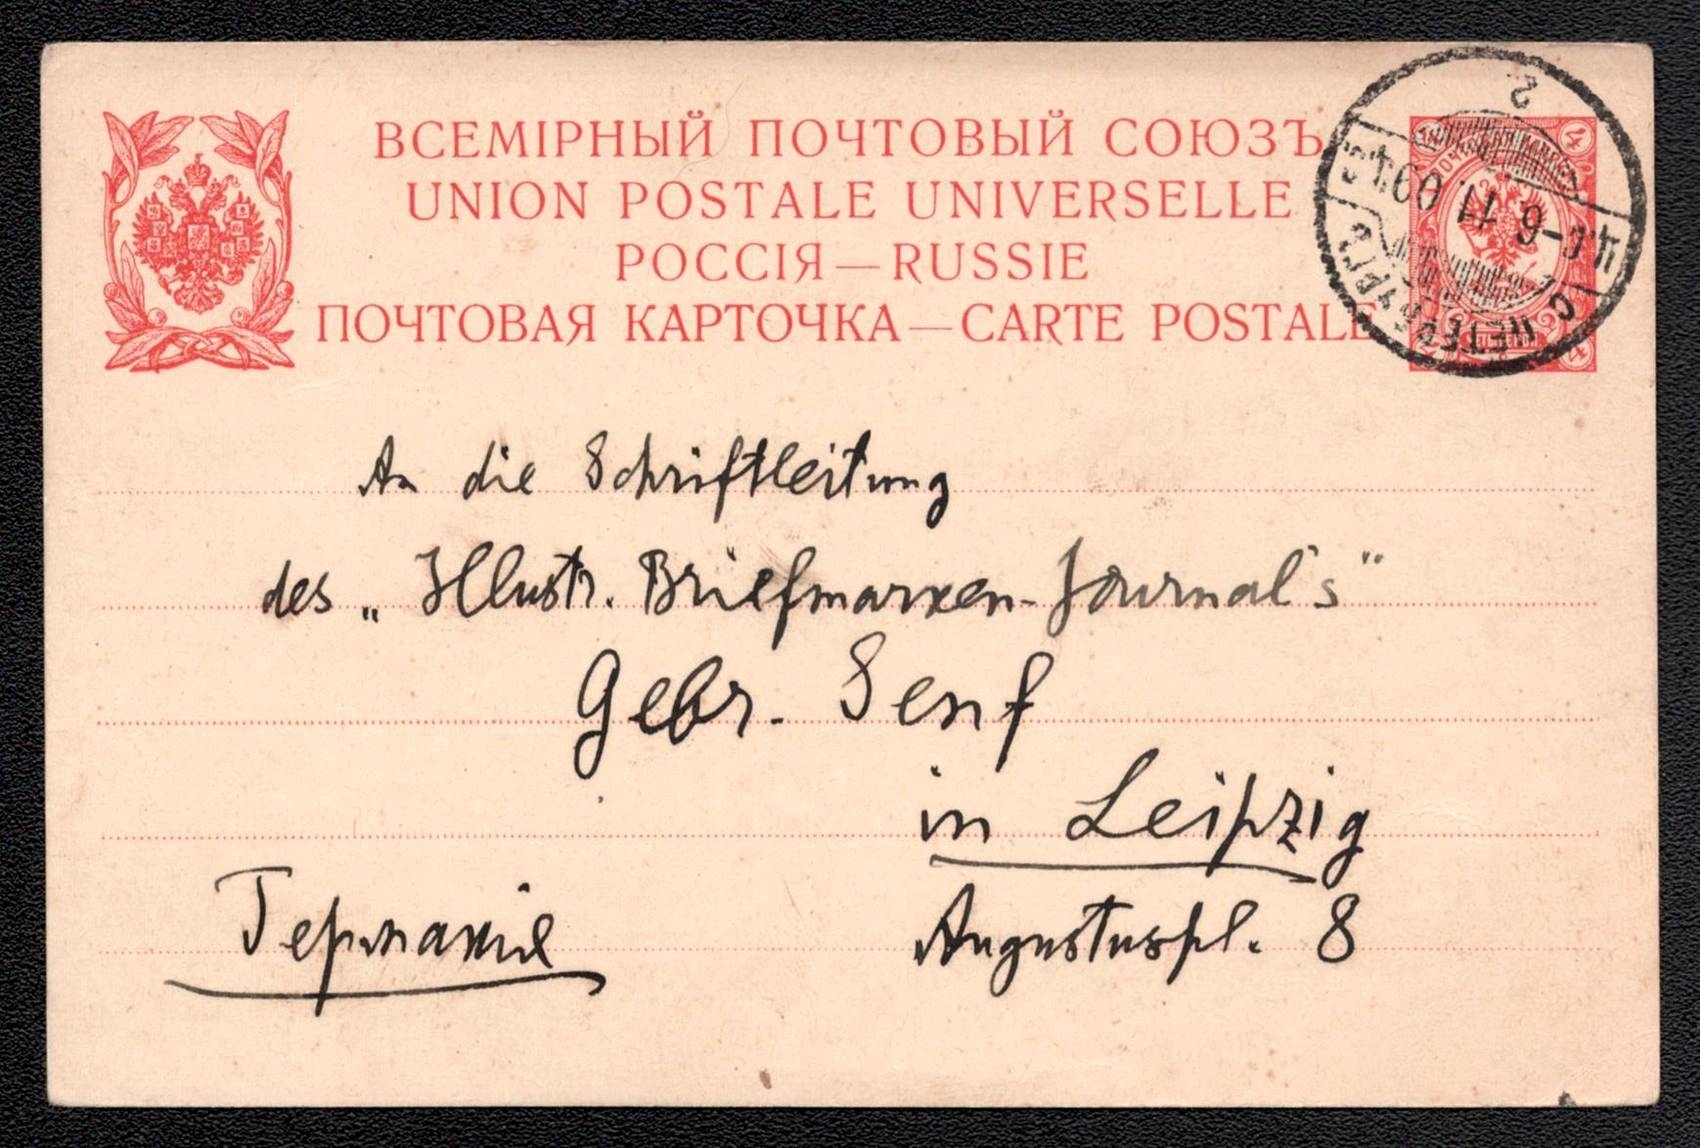 ВСЕМІРНЫЙ ПОЧТОВЫЙ СОЮЗЪ
UNION POSTALE UNIVERSELLE
РОССІЯ — RUSSIE
ПОЧТОВАЯ КАРТОЧКА — CARTE POSTALE
4
4
С ПЕТЕРБУРГЪ
2
An die Schriftleitung
des „Illustr. Briefmarken-Journal's"
Gebr. Senf
in Leipzig
Германія
Augustuspl. 8